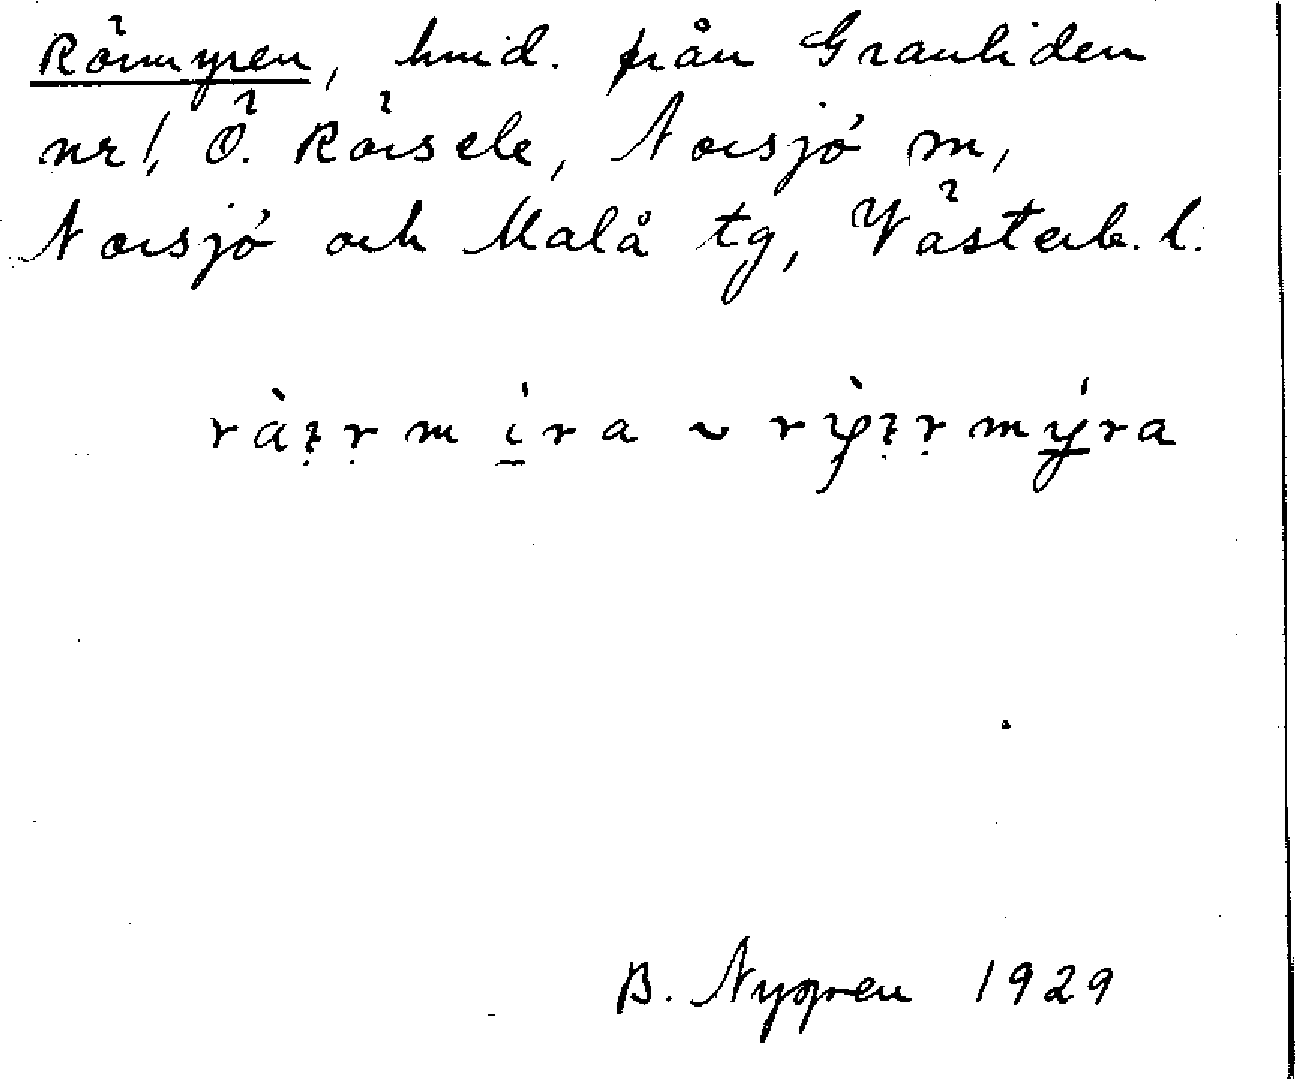 Rörmyren, hmd. från Granliden
nr 1, Ö. Rörsele, Norsjö sn,
Norsjö och Malå tg, Västerb. l.
B. Nygren 1929